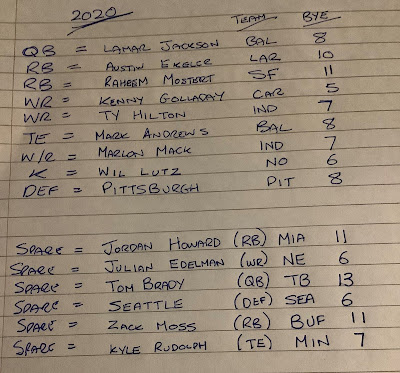 2020 TEAM BYE
QB = LAMAR JACKSON BAL 8
RB = AUSTIN EKELER LAR 10
RB = RAHEEM MOSTERT SF 11
WR = KENNY GOLLADAY CAR 5
WR = TY HILTON IND 7
TE = MARK ANDREWS BAL 8
W/R = MARLON MACK IND 7
K = WIL LUTZ NO 6
DEF = PITTSBURGH PIT 8
SPARE = JORDAN HOWARD (RB) MIA 11
SPARE = JULIAN EDELMAN (WR) NE 6
SPARE = TOM BRADY (QB) TB 13
SPARE = SEATTLE (DEF) SEA 6
SPARE = ZACK MOSS (RB) BUF 11
SPARE = KYLE RUDOLPH (TE) MIN 7